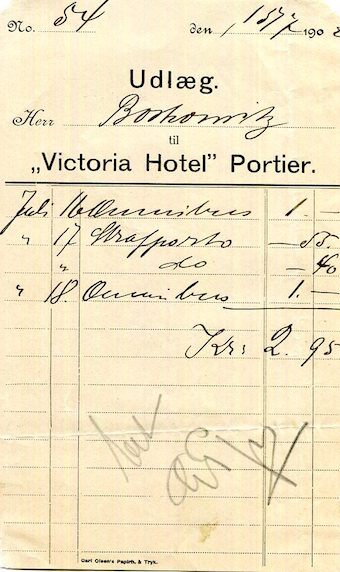 No. 54 den 18/7 1908
Udlæg.
Herr Boskowitz
til
„Victoria Hotel” Portier.
Juli 16 Omnibus 1. —
„ 17 Strafporto — 55.
„ do — 40
„ 18. Omnibus 1. —
Kr: 2. 95
Carl Olsen's Papirh. & Tryk.